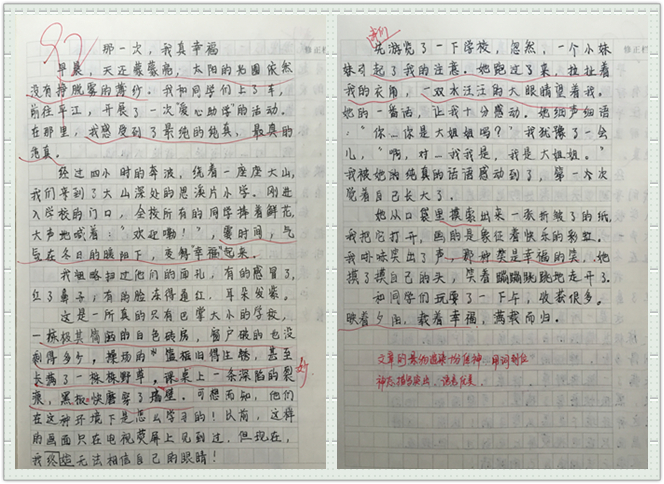 92
那一次，我真幸福
早晨，天还蒙蒙亮，太阳的光圈依然
没有挣脱雾的薄纱。我和同学们上了车，
前往平江，开展了一次“爱心助学”的活动。
在那里，我感受到了最纯的纯真，最真的
纯真。
经过四小时的奔波，绕着一座座大山，
我们来到了大山深处的思溪片小学。刚进
入学校的门口，全校所有的同学捧着鲜花，
大声地喊着：“欢迎嘞！”，霎时间，气
氛在冬日的暖阳下，变得“幸福”起来。
我粗略扫过他们的面孔，有的感冒了，
红了鼻子，有的脸冻得通红，耳朵发紫。
这是一所真的只有巴掌大小的学校，
一栋极其简陋的白色砖房，窗户破的也没
剩得多少，操场的 旧得生锈，甚至
长满了一株株野草，课桌上一条深陷的裂
痕，黑板快磨穿了墙壁。可想而知，他们
在这种环境下是怎么学习的！以前，这样
的画面只在电视荧屏上见到过，但现在，
我终 无法相信自己的眼睛！
妙
我们
先游览了一下学校，忽然，一个小妹
妹引起了我的注意。她跑过了来，拉扯着
我的衣角，一双水汪汪的大眼睛望着我，
她的一番话，让我十分感动。她细声细语：
“你…你是大姐姐吗？”我犹豫了一会
儿，“啊，对…我我是，我是大姐姐。”
我被她的纯真的话语感动到了，第一次
觉着自己长大了。
她从口袋里摸索出来一张折皱了的纸，
我把它打开，画的是象征着快乐的彩虹。
我咔咔笑出了声，那种笑是幸福的笑，她
摸了摸自己的头，笑着蹦蹦跳跳地走开了。
和同学们玩耍了一下午，收获很多。
映着夕阳，载着幸福，满载而归。
文章的景物渲染恰 用词到位
神态描写突出，语言优美。